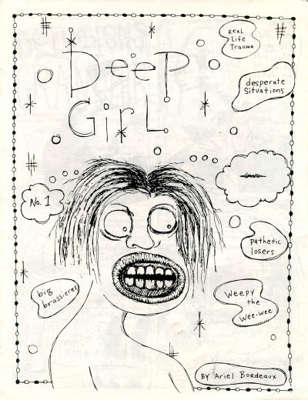 Deep
Girl
Real
Life
Trauma
desperate
Situations
No. 1
pathetic
losers
big
brassieres
Weepy
the
Wee-wee
By Ariel Bordeaux